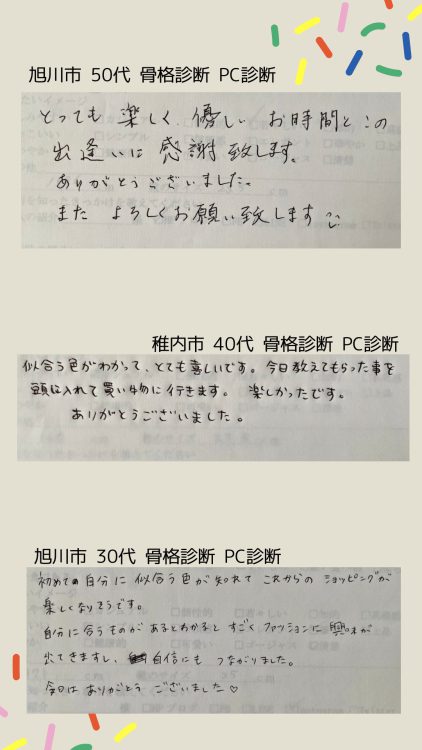 旭川市 50代 骨格診断 PC診断
とっても 楽しく 優しい お時間と この
出逢いに 感謝致します。
ありがとうございました。
また よろしくお願い致します
稚内市 40代 骨格診断 PC診断
似合う色がわかって、とても嬉しいです。今日教えてもらった事を
頭に入れて買い物に行きます。 楽しかったです。
ありがとうございました。
旭川市 30代 骨格診断 PC診断
初めて自分に似合う色が知れて これからの ショッピングが
楽しくなりそうです。
自分に合うものが あるとわかると すごく ファッションに興味が
出てきますし、自信にも つながりました。
今回は ありがとう ございました♡